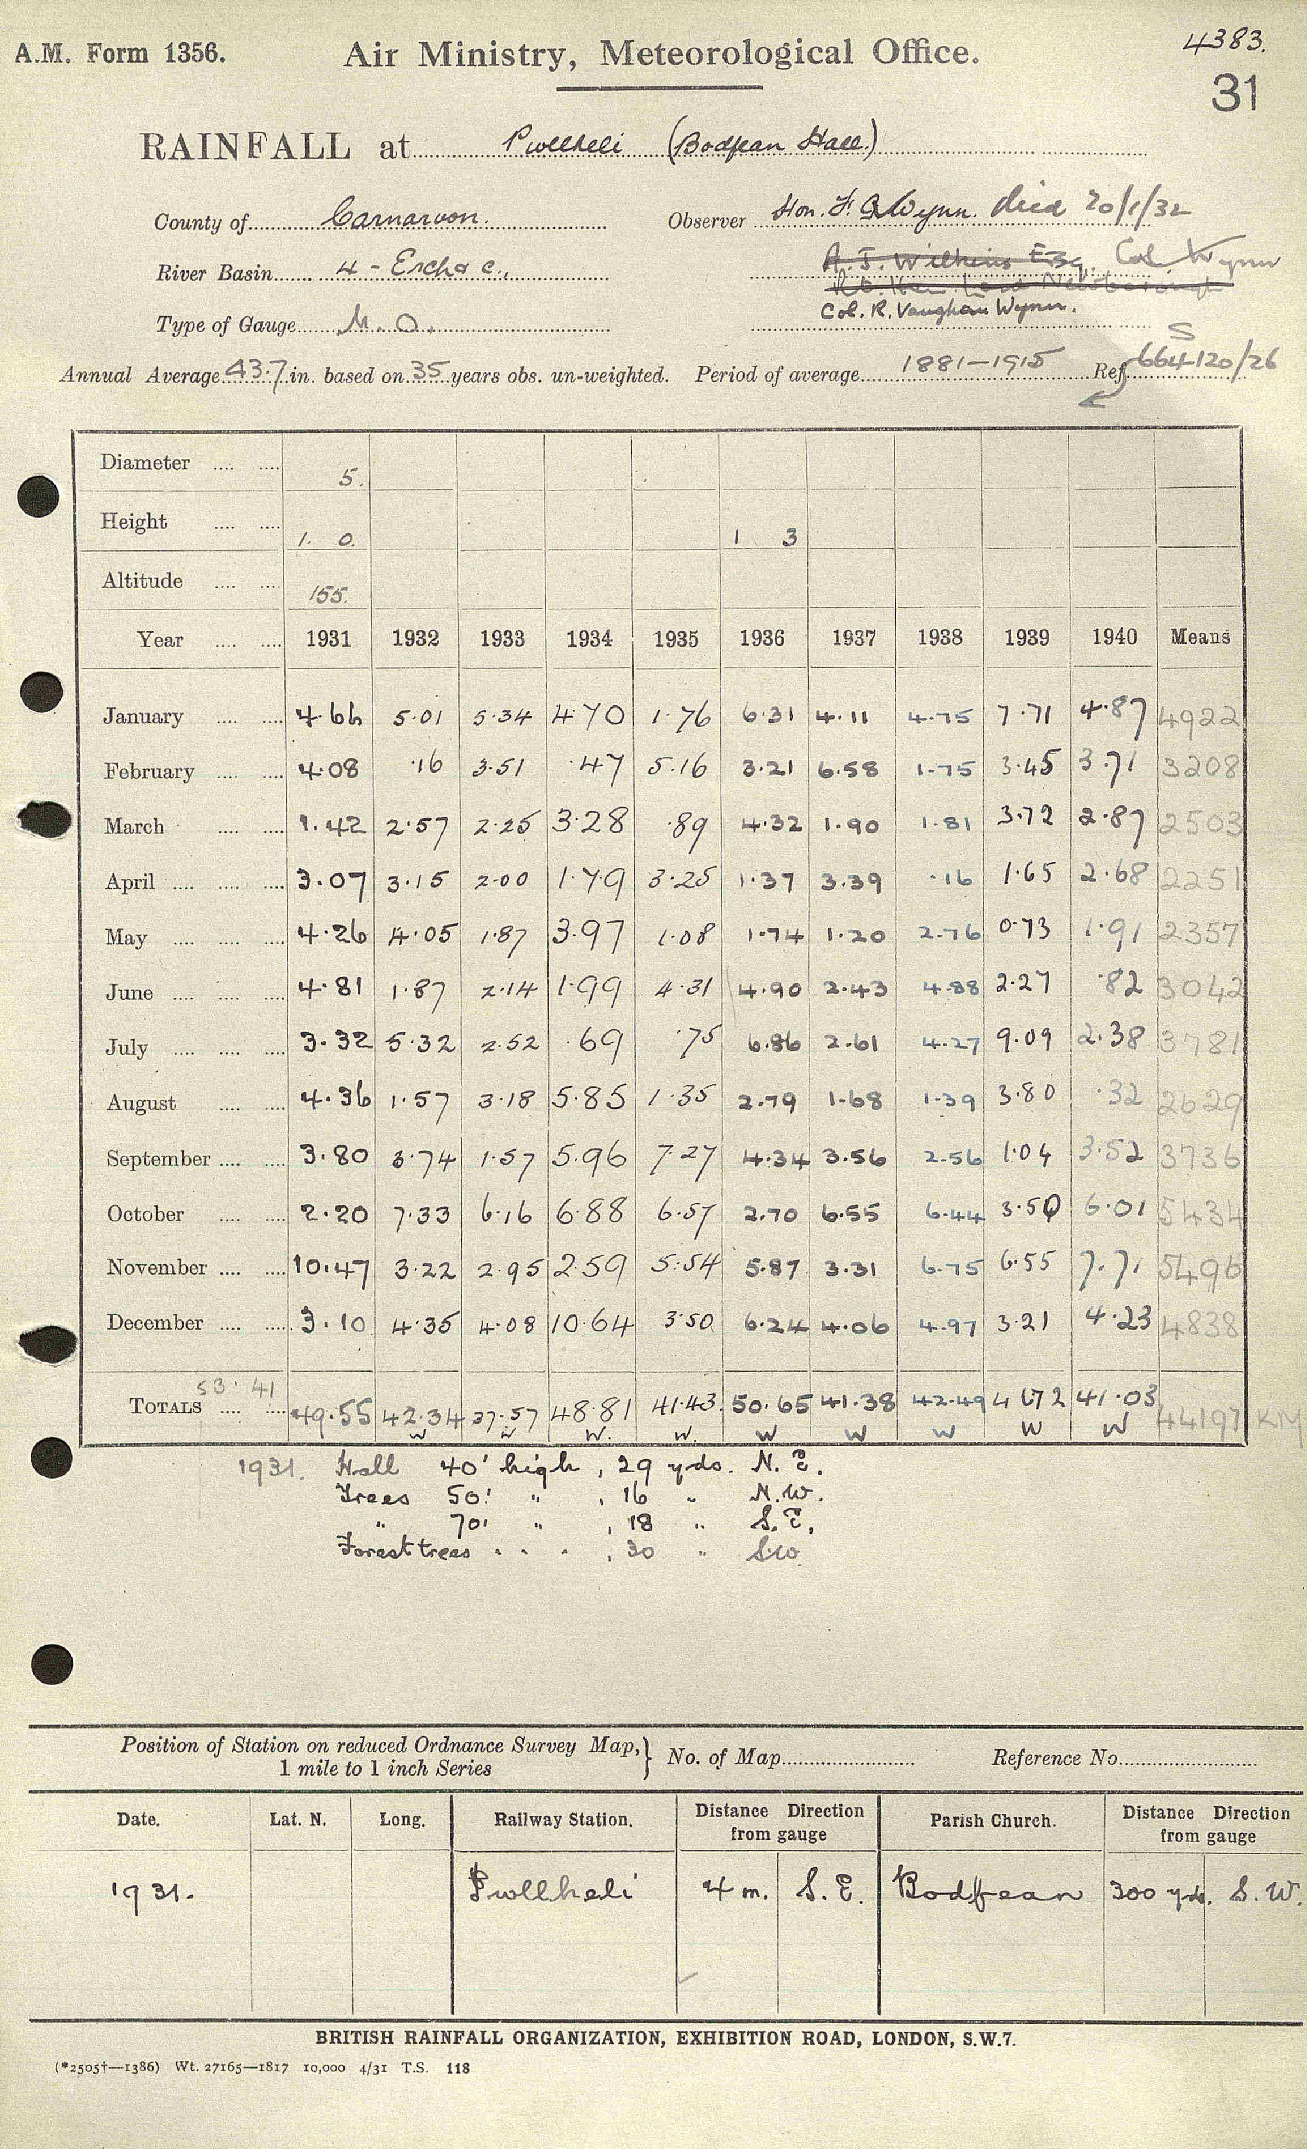 A.M. Form 1356.
Air Ministry, Meteorological Office.
4383.
31
RAINFALL at Pwllheli (Bodfean Hall.)
County of Carnarvon.
Observer Hon. F. G. Wynn. Died 20/1/32
River Basin 4 - Erch & c.,
A. J. Wilkins Esq. Col. Wynn
Type of Gauge M.O.
Col. R. Vaughan Wynn.
Annual Average 43.7 in. based on 35 years obs. un-weighted. Period of average 1881-1915 Ref. S 664120/26
Diameter 5.
Height 1. 0. 1 3
Altitude 155.
Year 1931 1932 1933 1934 1935 1936 1937 1938 1939 1940 Means
January 4.66 5.01 5.34 4.70 1.76 6.31 4.11 4.75 7.71 4.87 4922
February 4.08 .16 3.51 .47 5.16 3.21 6.58 1.75 3.45 3.71 3208
March 1.42 2.57 2.25 3.28 .89 4.32 1.90 1.81 3.72 2.87 2503
April 3.07 3.15 2.00 1.79 3.25 1.37 3.39 .16 1.65 2.68 2251
May 4.26 4.05 1.87 3.97 1.08 1.74 1.20 2.76 0.73 1.91 2357
June 4.81 1.87 2.14 1.99 4.31 4.90 2.43 4.88 2.27 .82 3042
July 3.32 5.32 2.52 .69 .75 6.86 2.61 4.27 9.09 2.38 3781
August 4.36 1.57 3.18 5.85 1.35 2.79 1.68 1.39 3.80 .32 2629
September 3.80 3.74 1.57 5.96 7.27 4.34 3.56 2.56 1.04 3.52 3736
October 2.20 7.33 6.16 6.88 6.57 2.70 6.55 6.44 3.50 6.01 5434
November 10.47 3.22 2.95 2.59 5.54 5.87 3.31 6.75 6.55 7.71 5496
December 3.10 4.35 4.08 10.64 3.50 6.24 4.06 4.97 3.21 4.23 4838
53.41
TOTALS 49.55 42.34 37.57 48.81 41.43 50.65 41.38 42.49 4672 41.03 44197 KM
W W W. W. W W W W W
1931. Hall 40' high, 29 yds. N.E.
Trees 50' " , 16 " N.W.
" 70' " , 18 " S.E.
Forest trees " " " , 30 " S.W.
Position of Station on reduced Ordnance Survey Map, 1 mile to 1 inch Series } No. of Map Reference No.
Date. Lat. N. Long. Railway Station. Distance Direction from gauge Parish Church. Distance Direction from gauge
1931. Pwllheli 4 m. S.E. Bodfean 300 yds. S.W.
BRITISH RAINFALL ORGANIZATION, EXHIBITION ROAD, LONDON, S.W.7.
(*2505†—1386) Wt. 27165—1817 10,000 4/31 T.S. 118